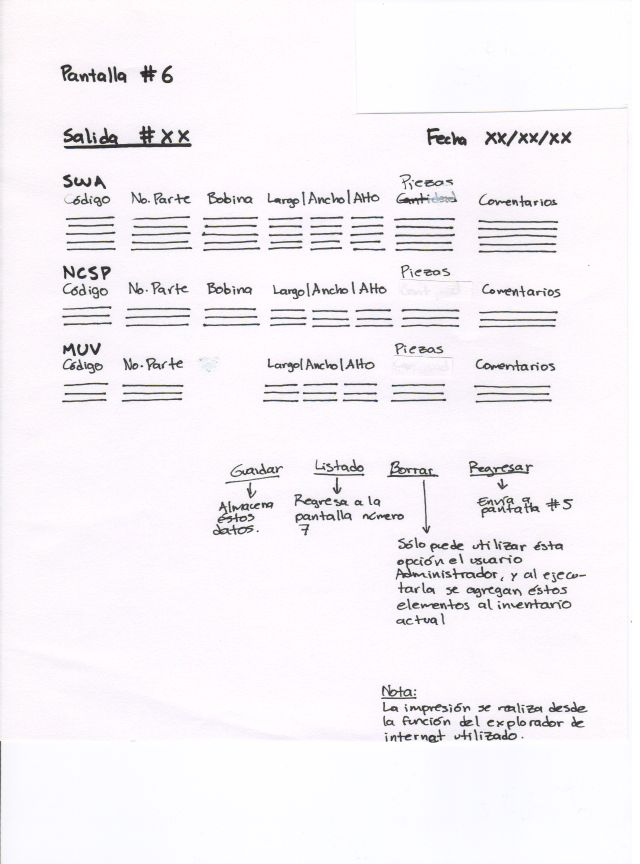 Pantalla #6
Salida #XX Fecha XX/XX/XX
SWA
Código No. Parte Bobina Largo|Ancho|Alto Piezas Cantidad Comentarios
NCSP
Código No. Parte Bobina Largo|Ancho|Alto Piezas Comentarios
MUV
Código No. Parte Largo|Ancho|Alto Piezas Comentarios
Guardar Listado Borrar Regresar
Almacena
éstos
datos.
Regresa a la
pantalla número
7
Sólo puede utilizar ésta
opción el usuario
Administrador, y al ejecu-
tarla se agregan éstos
elementos al inventario
actual
Envía a
pantalla #5
Nota:
La impresión se realiza desde
la función del explorador de
internet utilizado.